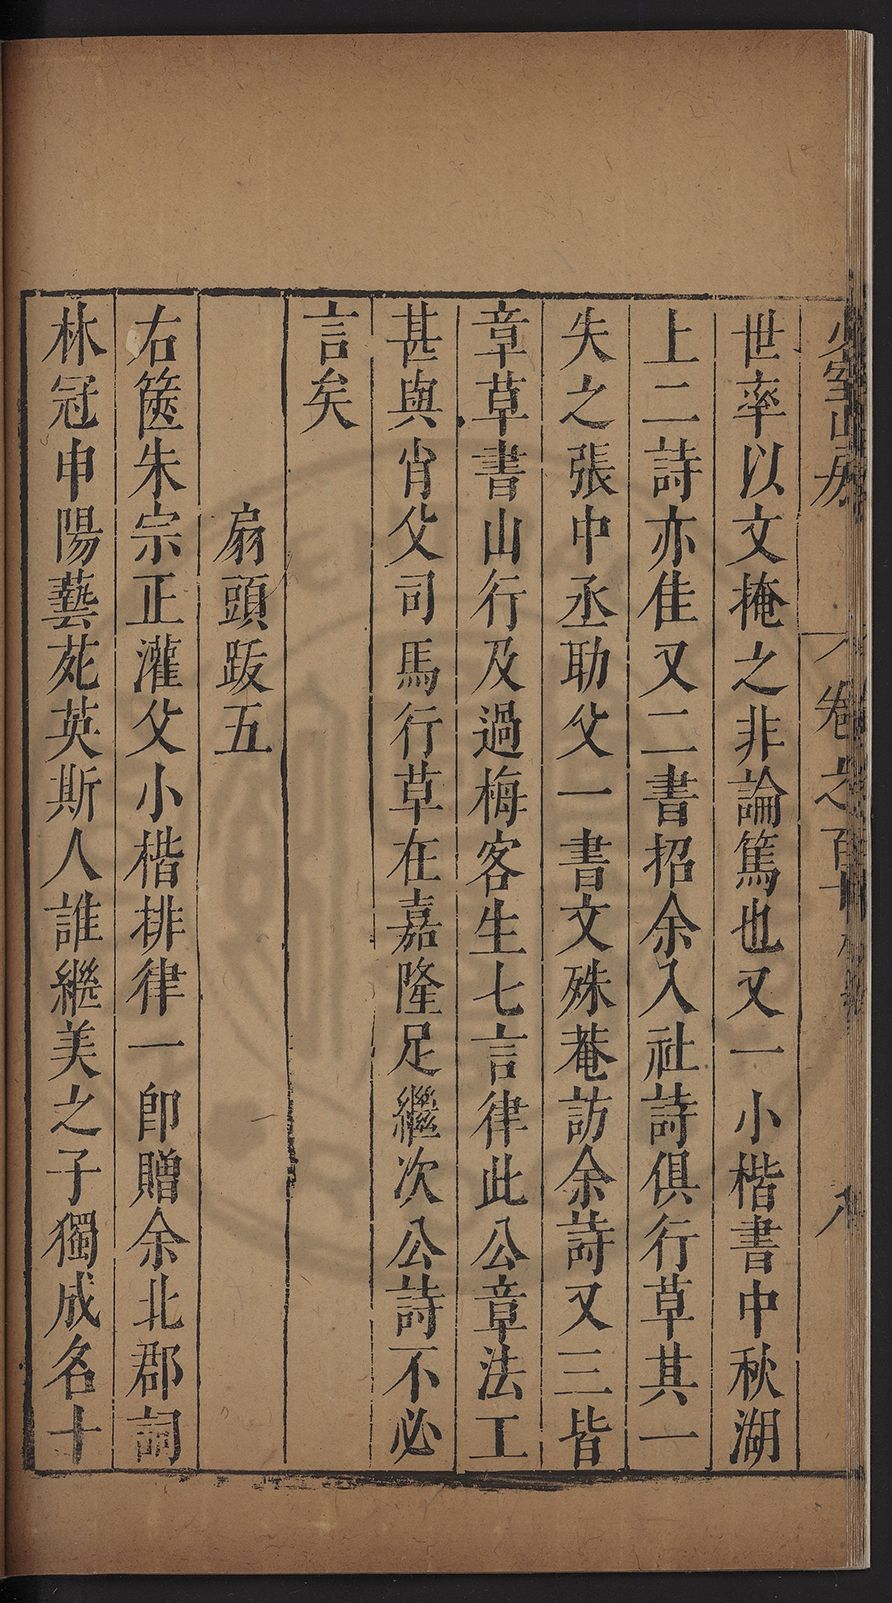 少室山房
卷之百十
八
世率以文掩之非論篤也又一小楷書中秋湖
上二詩亦佳又二書招余入社詩俱行草其一
失之張中丞助父一書文殊菴訪余詩又三皆
章草書山行及過梅客生七言律此公章法工
甚與肖父司馬行草在嘉隆足繼次公詩不必
言矣
扇頭跋五
右篋朱宗正灌父小楷排律一卽贈余北郡詞
林冠申陽藝苑英斯人誰繼美之子獨成名十